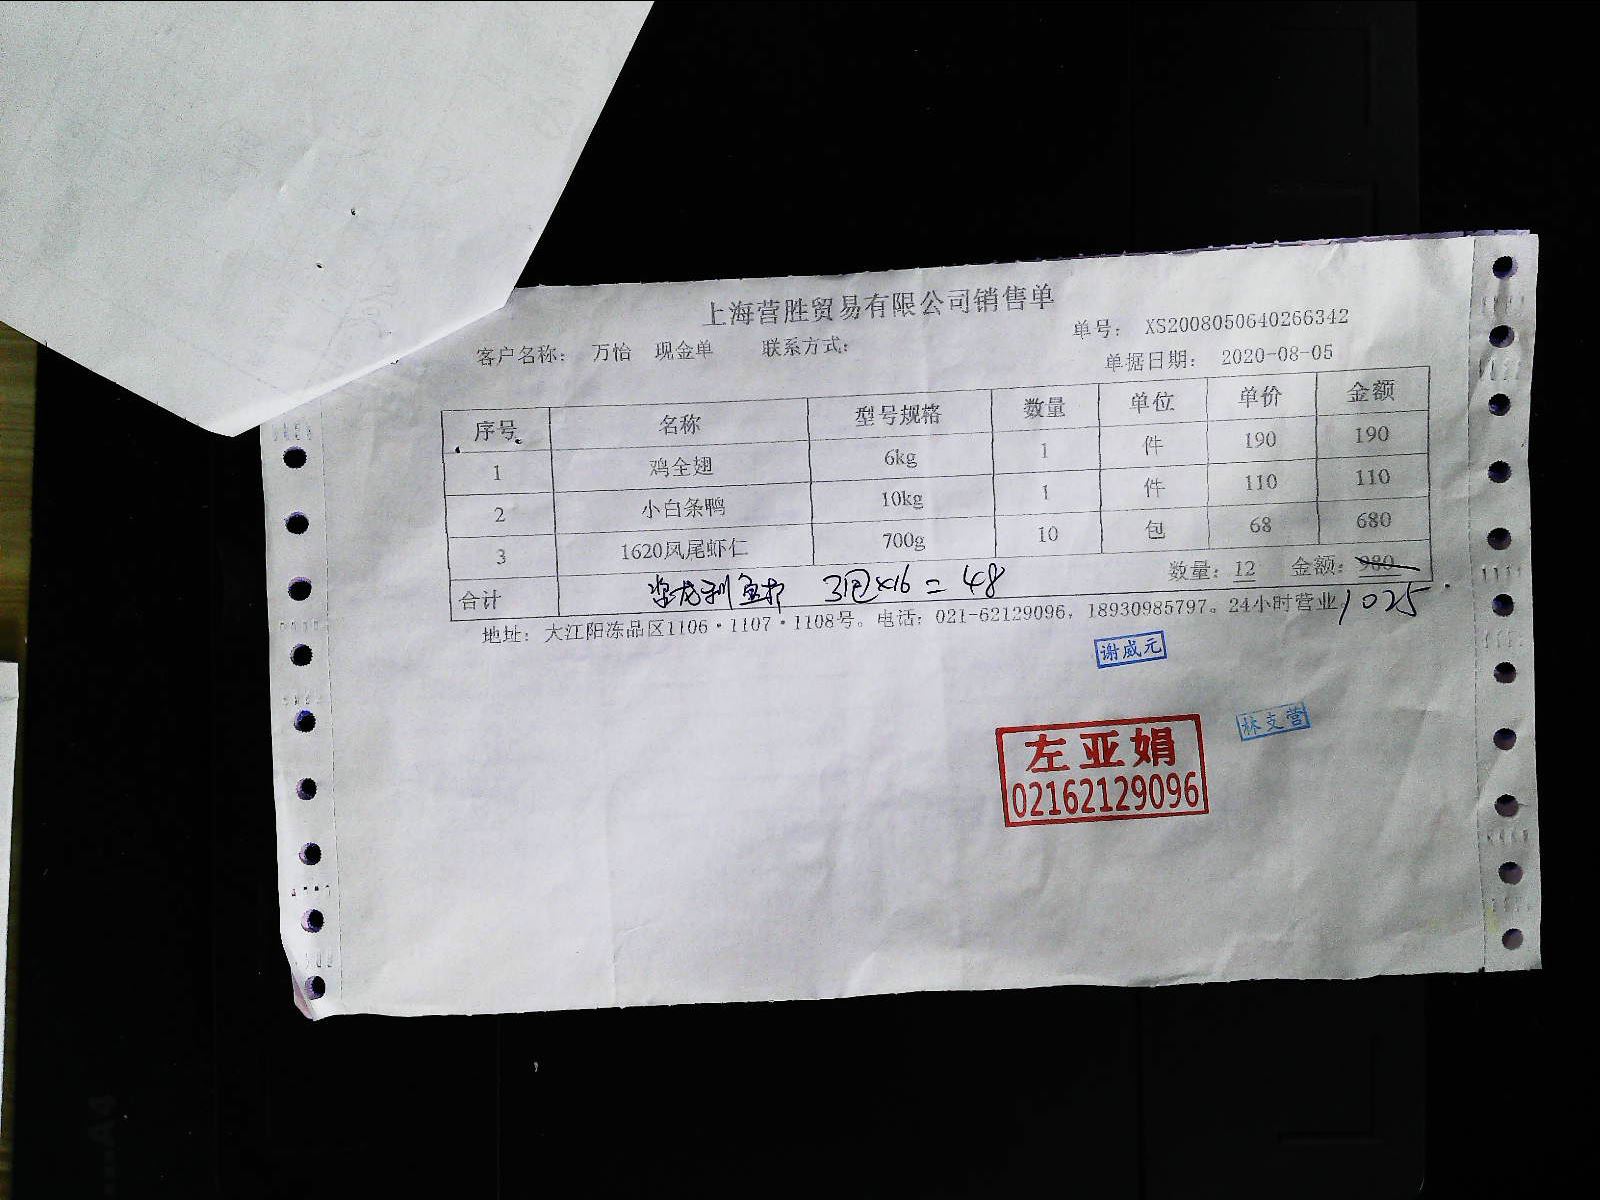 上海营胜贸易有限公司销售单
单号： XS2008050640266342
客户名称： 万怡 现金单 联系方式：
单据日期： 2020-08-05
序号 名称 型号规格 数量 单位 单价 金额
1 鸡全翅 6kg 1 件 190 190
2 小白条鸭 10kg 1 件 110 110
3 1620凤尾虾仁 700g 10 包 68 680
合计 龙利鱼 3包×16=48 数量：12 金额：980
1025
地址： 大江阳冻品区1106·1107·1108号。电话：021-62129096，18930985797。24小时营业
谢威元
林支营
左亚娟
02162129096